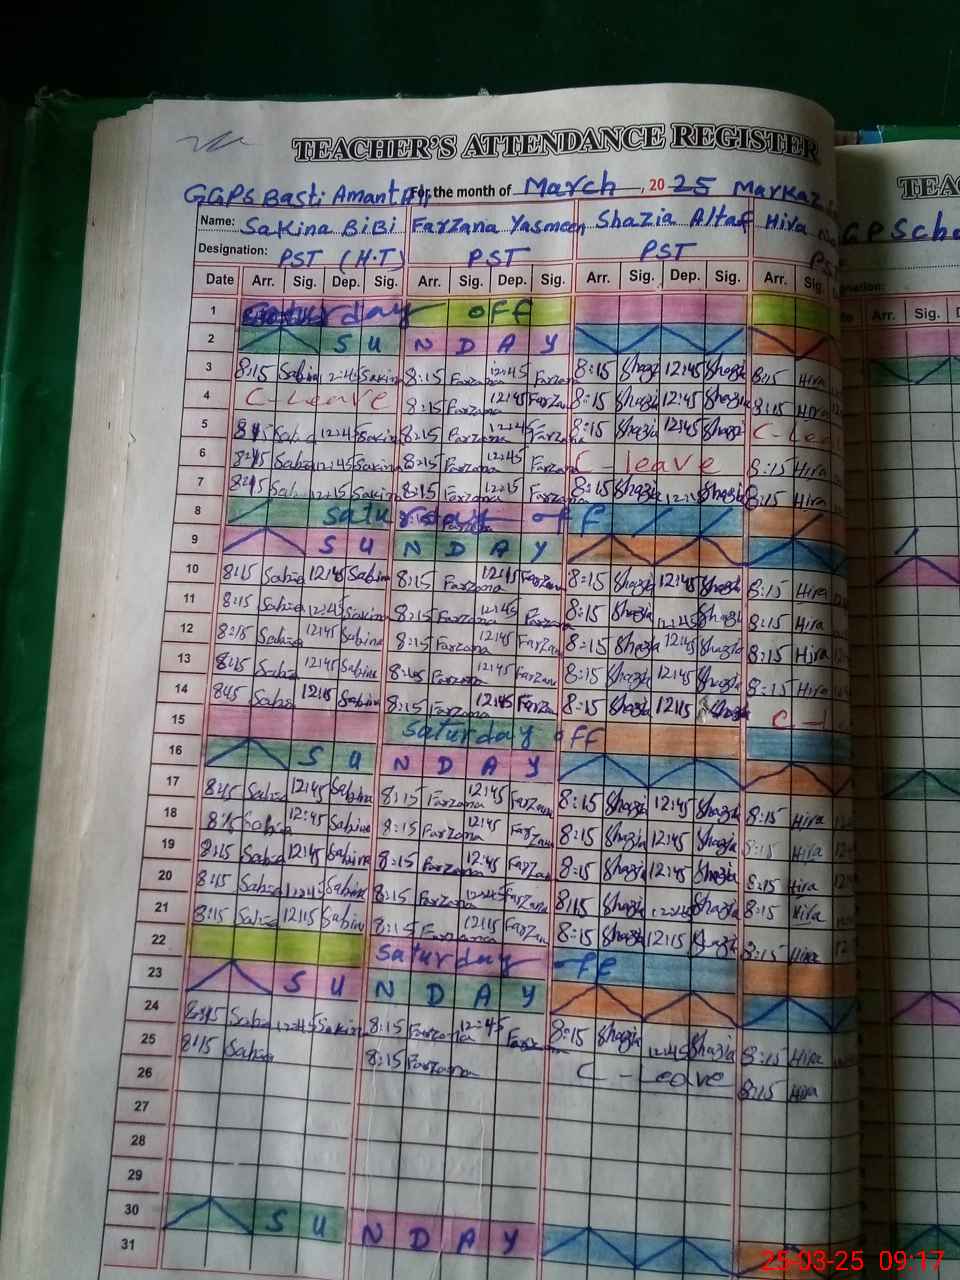 TEACHER'S ATTENDANCE REGISTER
TEAC
GGPS Basti Amant For the month of March, 20 25 Markaz
Name: Sakina BiBi Farzana Yasmeen Shazia Altaf Hira
Designation: PST (H.T) PST PST PS
Date Arr. Sig. Dep. Sig. Arr. Sig. Dep. Sig. Arr. Sig. Dep. Sig. Arr. Sig. Arr. Sig.
1 Saturday off
2 S U N D A Y
3 8:15 12:45 Sakina 8:15 Farzana 12:45 Farzana 8:15 Shazia 12:45 Shazia 8:15 Hira
4 C-Leave 8:15 Farzana 12:45 Farzana 8:15 Shazia 12:45 Shazia 8:15 Hira
5 12:45 Sakina 8:15 Farzana 12:45 Farzana 8:15 Shazia 12:45 Shazia C-Lea
6 12:45 Sakina 8:15 Farzana 12:45 Farzana C-leave 8:15 Hira
7 12:15 Sakina 8:15 Farzana 12:15 Farzana 8:15 Shazia 12:15 Shazia 8:15 Hira
8 Saturday off
9 S U N D A Y
10 8:15 12:45 8:15 Farzana 12:45 Farzana 8:15 Shazia 12:45 Shazia 8:15 Hira
11 8:15 12:45 Sakina 8:15 Farzana 12:45 Farzana 8:15 Shazia 12:45 Shazia 8:15 Hira
12 8:15 12:45 8:15 Farzana 12:45 Farzana 8:15 Shazia 12:45 Shazia 8:15 Hira
13 8:15 12:45 8:15 Farzana 12:45 Farzana 8:15 Shazia 12:45 Shazia 8:15 Hira
14 12:15 8:15 Farzana 12:45 Farzana 8:15 Shazia 12:15 Shazia C-L
15 Saturday off
16 S U N D A Y
17 12:45 8:15 Farzana 12:45 Farzana 8:15 Shazia 12:45 Shazia 8:15 Hira
18 8:15 12:45 8:15 Farzana 12:45 Farzana 8:15 Shazia 12:45 Shazia 8:15 Hira
19 8:15 12:45 8:15 Farzana 12:45 Farzana 8:15 Shazia 12:45 Shazia 8:15 Hira
20 8:15 12:45 8:15 Farzana 12:45 Farzana 8:15 Shazia 12:45 Shazia 8:15 Hira
21 8:15 12:15 8:15 Farzana 12:15 Farzana 8:15 Shazia 12:15 Shazia 8:15 Hira
22 Saturday off
23 S U N D A Y
24 12:45 Sakina 8:15 Farzana 12:45 Farzana 8:15 Shazia 12:45 Shazia 8:15 Hira
25 8:15 8:15 Farzana C-Leave 8:15 Hira
26
27
28
29
30 S U N D A Y
31
25-03-25 09:17